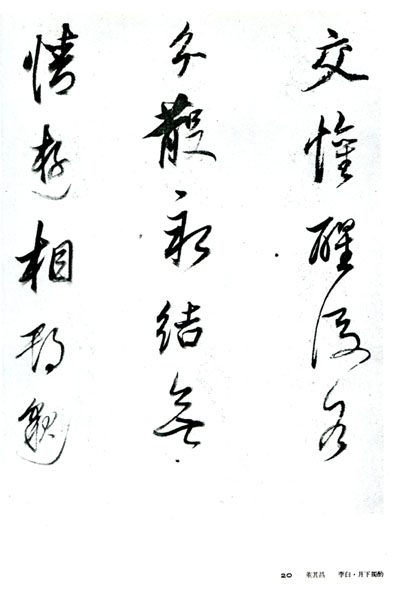 交懽醒後各
分散永結無
情遊相期邈
20 董其昌 李白・月下獨酌